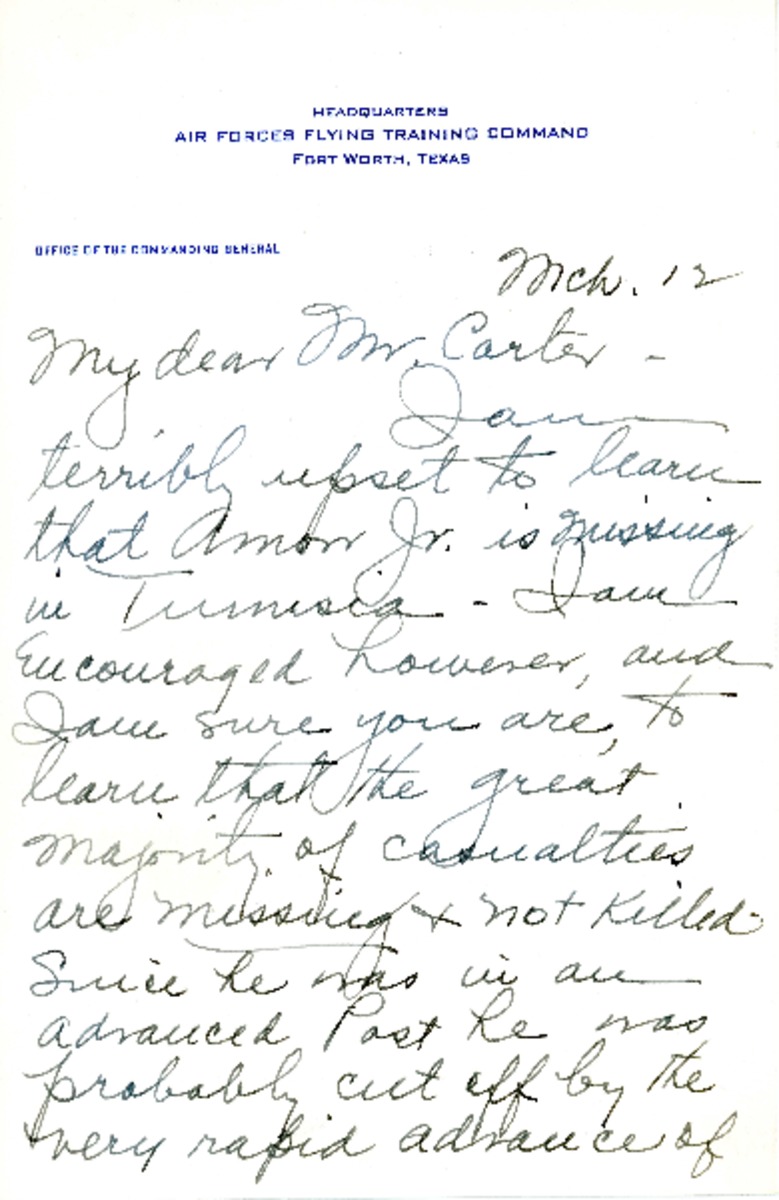 HEADQUARTERS
AIR FORCES FLYING TRAINING COMMAND
FORT WORTH, TEXAS
OFFICE OF THE COMMANDING GENERAL
Mch. 12
My dear Mr. Carter -
I am
terribly upset to learn
that Amon Jr. is missing
in Tunisia - I am
Encouraged however, and
I am sure you are, to
learn that the great
majority of casualties
are missing & not killed.
Since he was in an
advanced Post he was
probably cut off by the
very rapid advance of